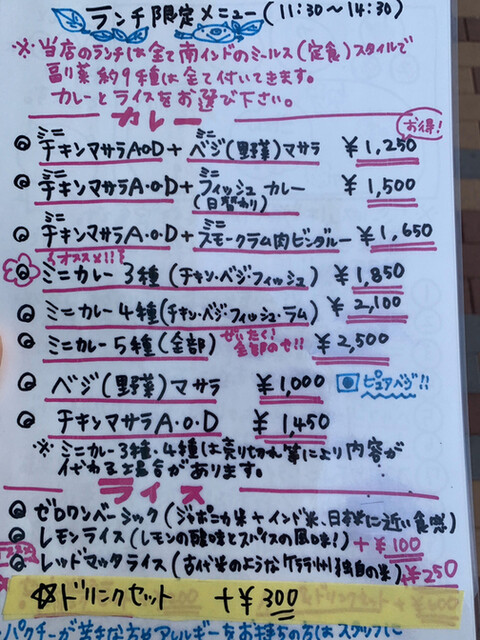 ランチ限定メニュー(11:30〜14:30)
※当店のランチは全て南インドのミールス(定食)スタイルで
副菜約9種は全て付いてきます。
カレーとライスをお選び下さい。
カレー
お得!
ミニチキンマサラA.O.D+ミニベジ(野菜)マサラ ¥1,250
ミニチキンマサラA.O.D+ミニフィッシュカレー(日替わり) ¥1,500
ミニチキンマサラA.O.D+ミニスモークラム肉ビンダルー ¥1,650
オススメ!!
ミニカレー3種(チキン・ベジ・フィッシュ) ¥1,850
ミニカレー4種(チキン・ベジ・フィッシュ・ラム) ¥2,100
ミニカレー5種(全部) ぜいたく!全部のせ!! ¥2,500
ベジ(野菜)マサラ ¥1,000 ピュアベジ!!
チキンマサラA.O.D ¥1,450
※ミニカレー3種、4種は売り切れ等により内容が
代わる場合があります。
ライス
ゼロワンベーシック(ジャポニカ米+インド米、日本米に近い食感)
レモンライス(レモンの酸味とスパイスの風味!) +¥100
レッドマッタライス(古代米のようなケララ州独自の米) +¥250
☆ドリンクセット +¥300
パクチーが苦手な方やアレルギーをお持ちの方はスタッフに